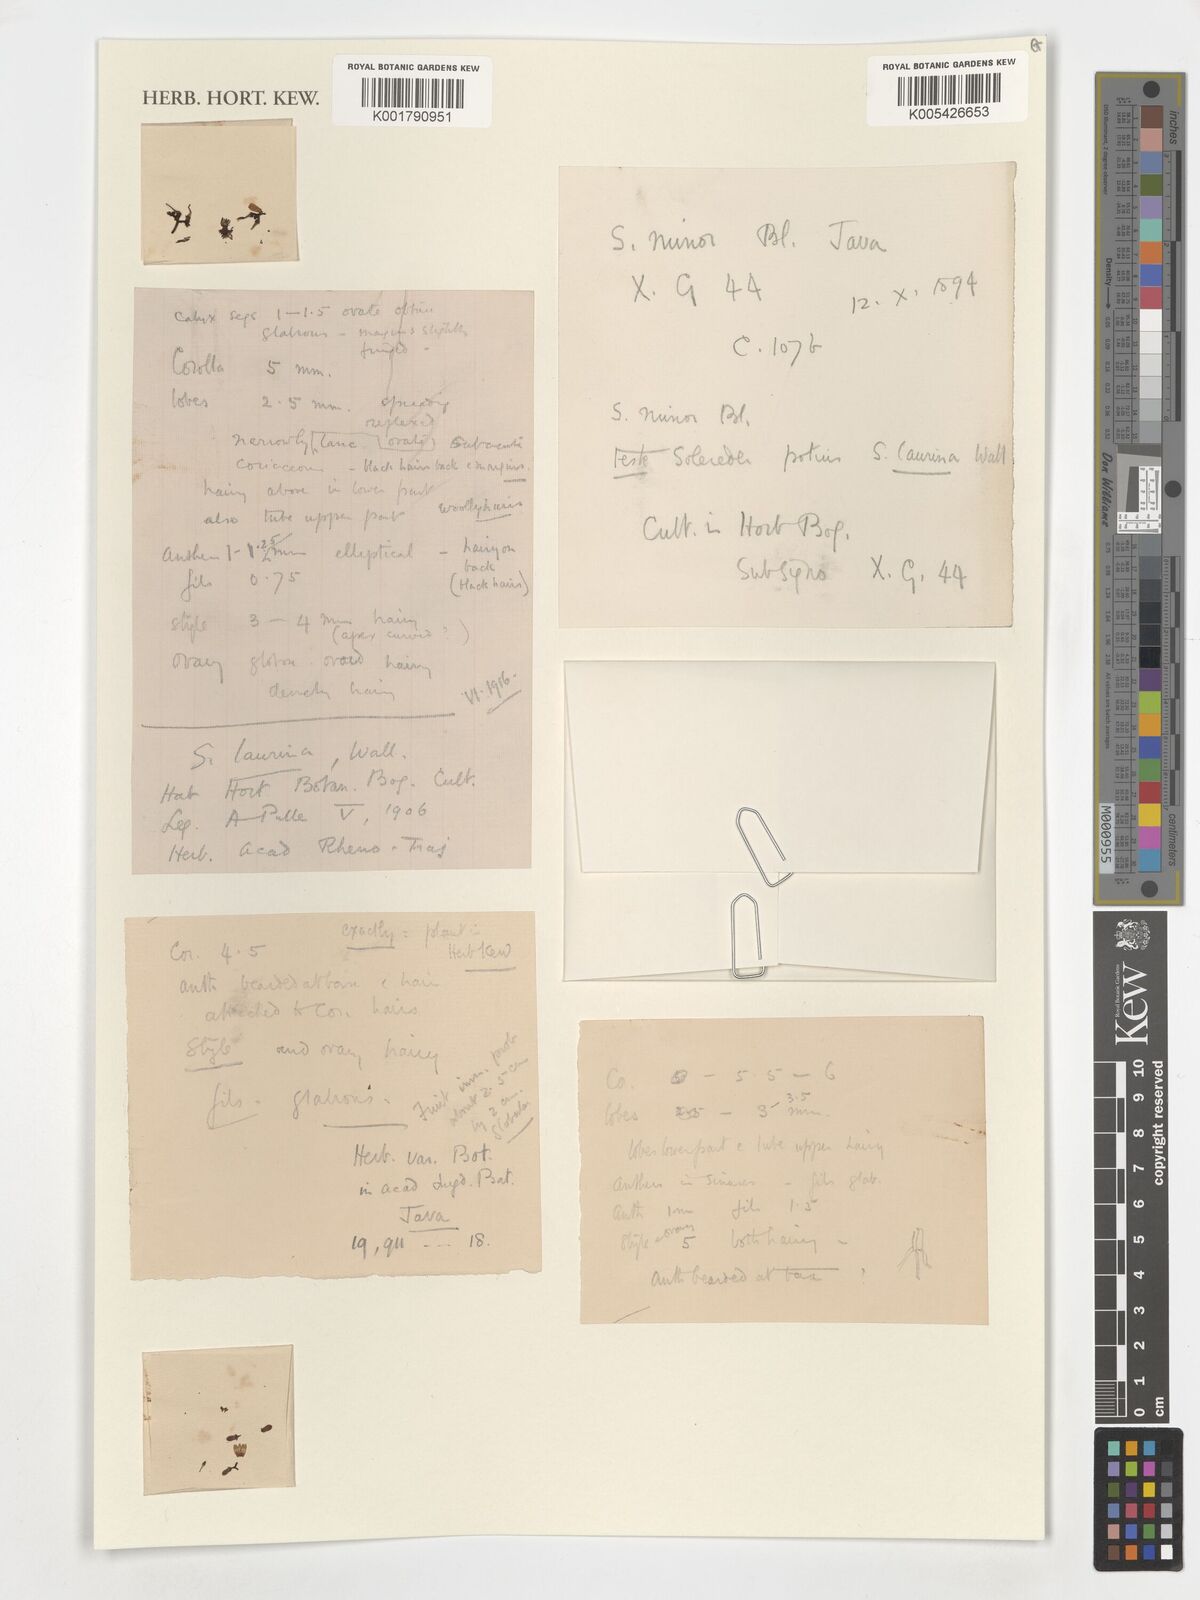 HERB. HORT. KEW.
ROYAL BOTANIC GARDENS KEW
K001790951
ROYAL BOTANIC GARDENS KEW
K005426653
Calyx segs 1–1.5 ovate obtuse
glabrous – margins slightly
fringed –
Corolla 5 mm.
lobes 2.5 mm. spreading
reflexed
narrowly lanc (ovate) subacute
coriaceous – black hairs back & margins.
hairy above in lower part
also tube upper part woolly hairs
Anthers 1–1.25 mm elliptical – hairy on
back
fils 0.75 (black hairs)
Style 3 – 4 mm hairy
(apex curved ?)
Ovary globose ovoid hairy
densely hairy
VI-1916-
S. laurina, Wall.
Hab Hort Botan. Bog. Cult.
Leg. A Pulle V, 1906
Herb. Acad Rheno-Traj
exactly = plant in
Herb Kew
Cor. 4.5
anth bearded at base c hair
attached to Cor. hairs
Style and ovary hairy
fils – glabrous.
Fruit imm. prob
about 2.5 cm
by 2 cm.
globular
Herb. var. Bot.
in acad Lugd. Bat.
Java
19,911 --- 18.
S. minor Bl. Java
X. G 44
12. X. 1894
C. 107b
S. minor Bl.
teste Solereder potius S. laurina Wall
Cult. in Hort Bog.
sub signo X. G. 44
Co. – 5.5 – 6
lobes 2.5 – 3 3.5 mm.
lobes lower part & tube upper hairy
Anthers in sinuses – fils glab.
Anth 1 mm fils 1.5
Style & ovary 5 both hairy –
Anth bearded at base ?
inches
centimeters
Density
Don Williams
M000955
Kew
Royal Botanic Gardens
copyright reserved
10
9
8
7
6
5
4
3
2
1
0
cm